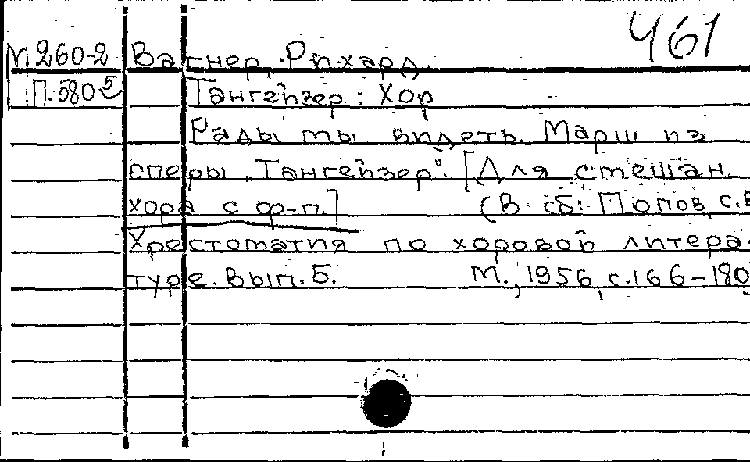 461
М.260-2 Вагнер, Рихард.
П.580 Тангейзер: Хор
Рады мы видеть. Марш из
оперы „Тангейзер". [Для смешан.
хора с ф-п.] (В сб: Попов, С.В
Хрестоматия по хоровой литера-
туре. Вып. 5. М., 1956, с.166-180